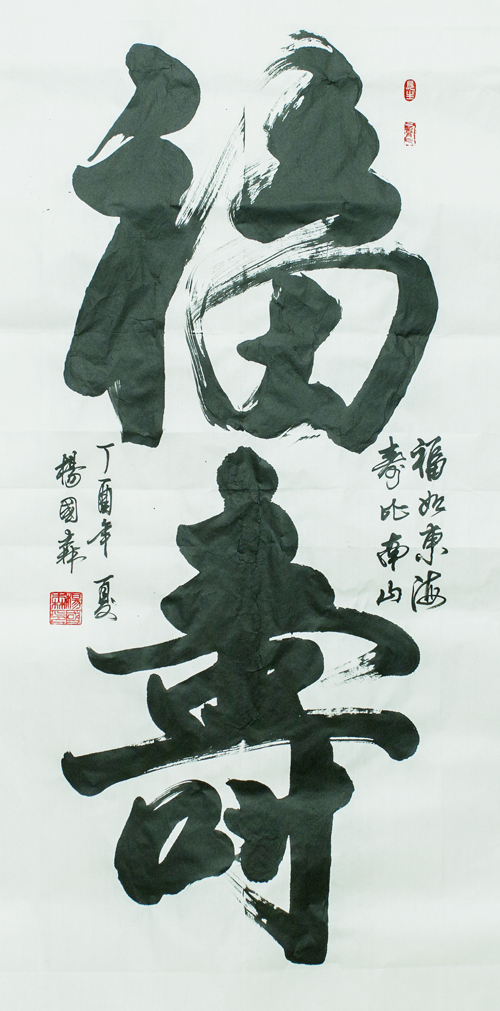 福
壽
福如東海
壽比南山
丁酉年夏
楊國彝